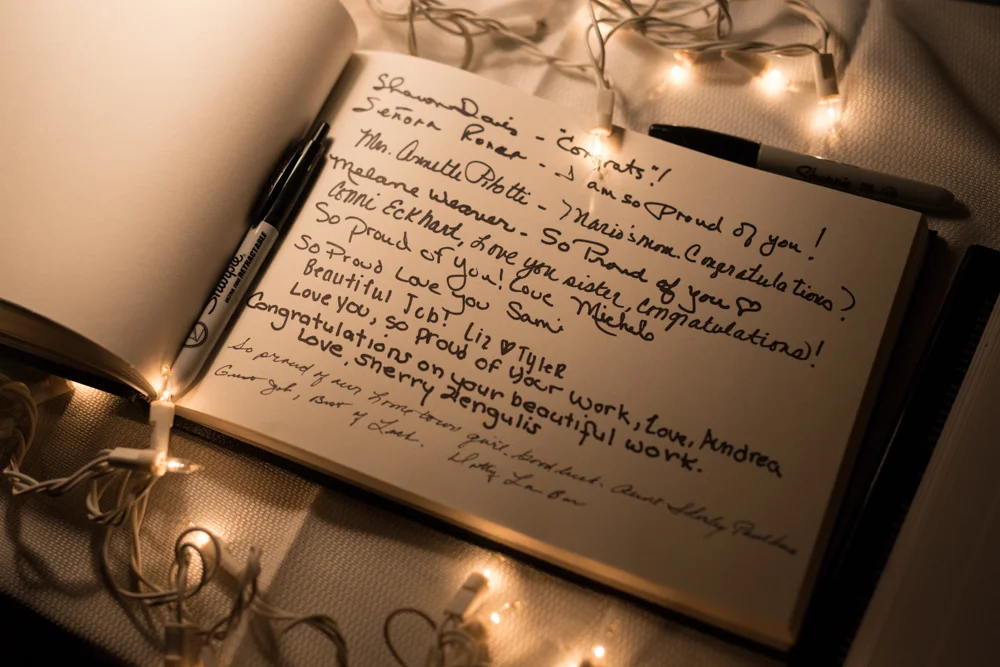 Shawna Davis - "Congrats"!
Señora Roner - I am so Proud of you!
Mrs. Annette Pilotti - Mario's mom. Congratulations)
Melanie Weaver - So Proud of you ♡
Conni Eckhart, Love you sister, Congratulations)!
So Proud of you! Love Michele
So Proud Love you Sami
Beautiful Job! Liz ♥ Tyler
Love you, so proud of your work, Love, Aundrea
Congratulations on your beautiful work.
Love, Sherry Zengulis
So proud of our hometown girl. Good luck. Aunt Shirley
Great Job, Best of Luck.
Sharpie
RETRACTABLE
Sharpie